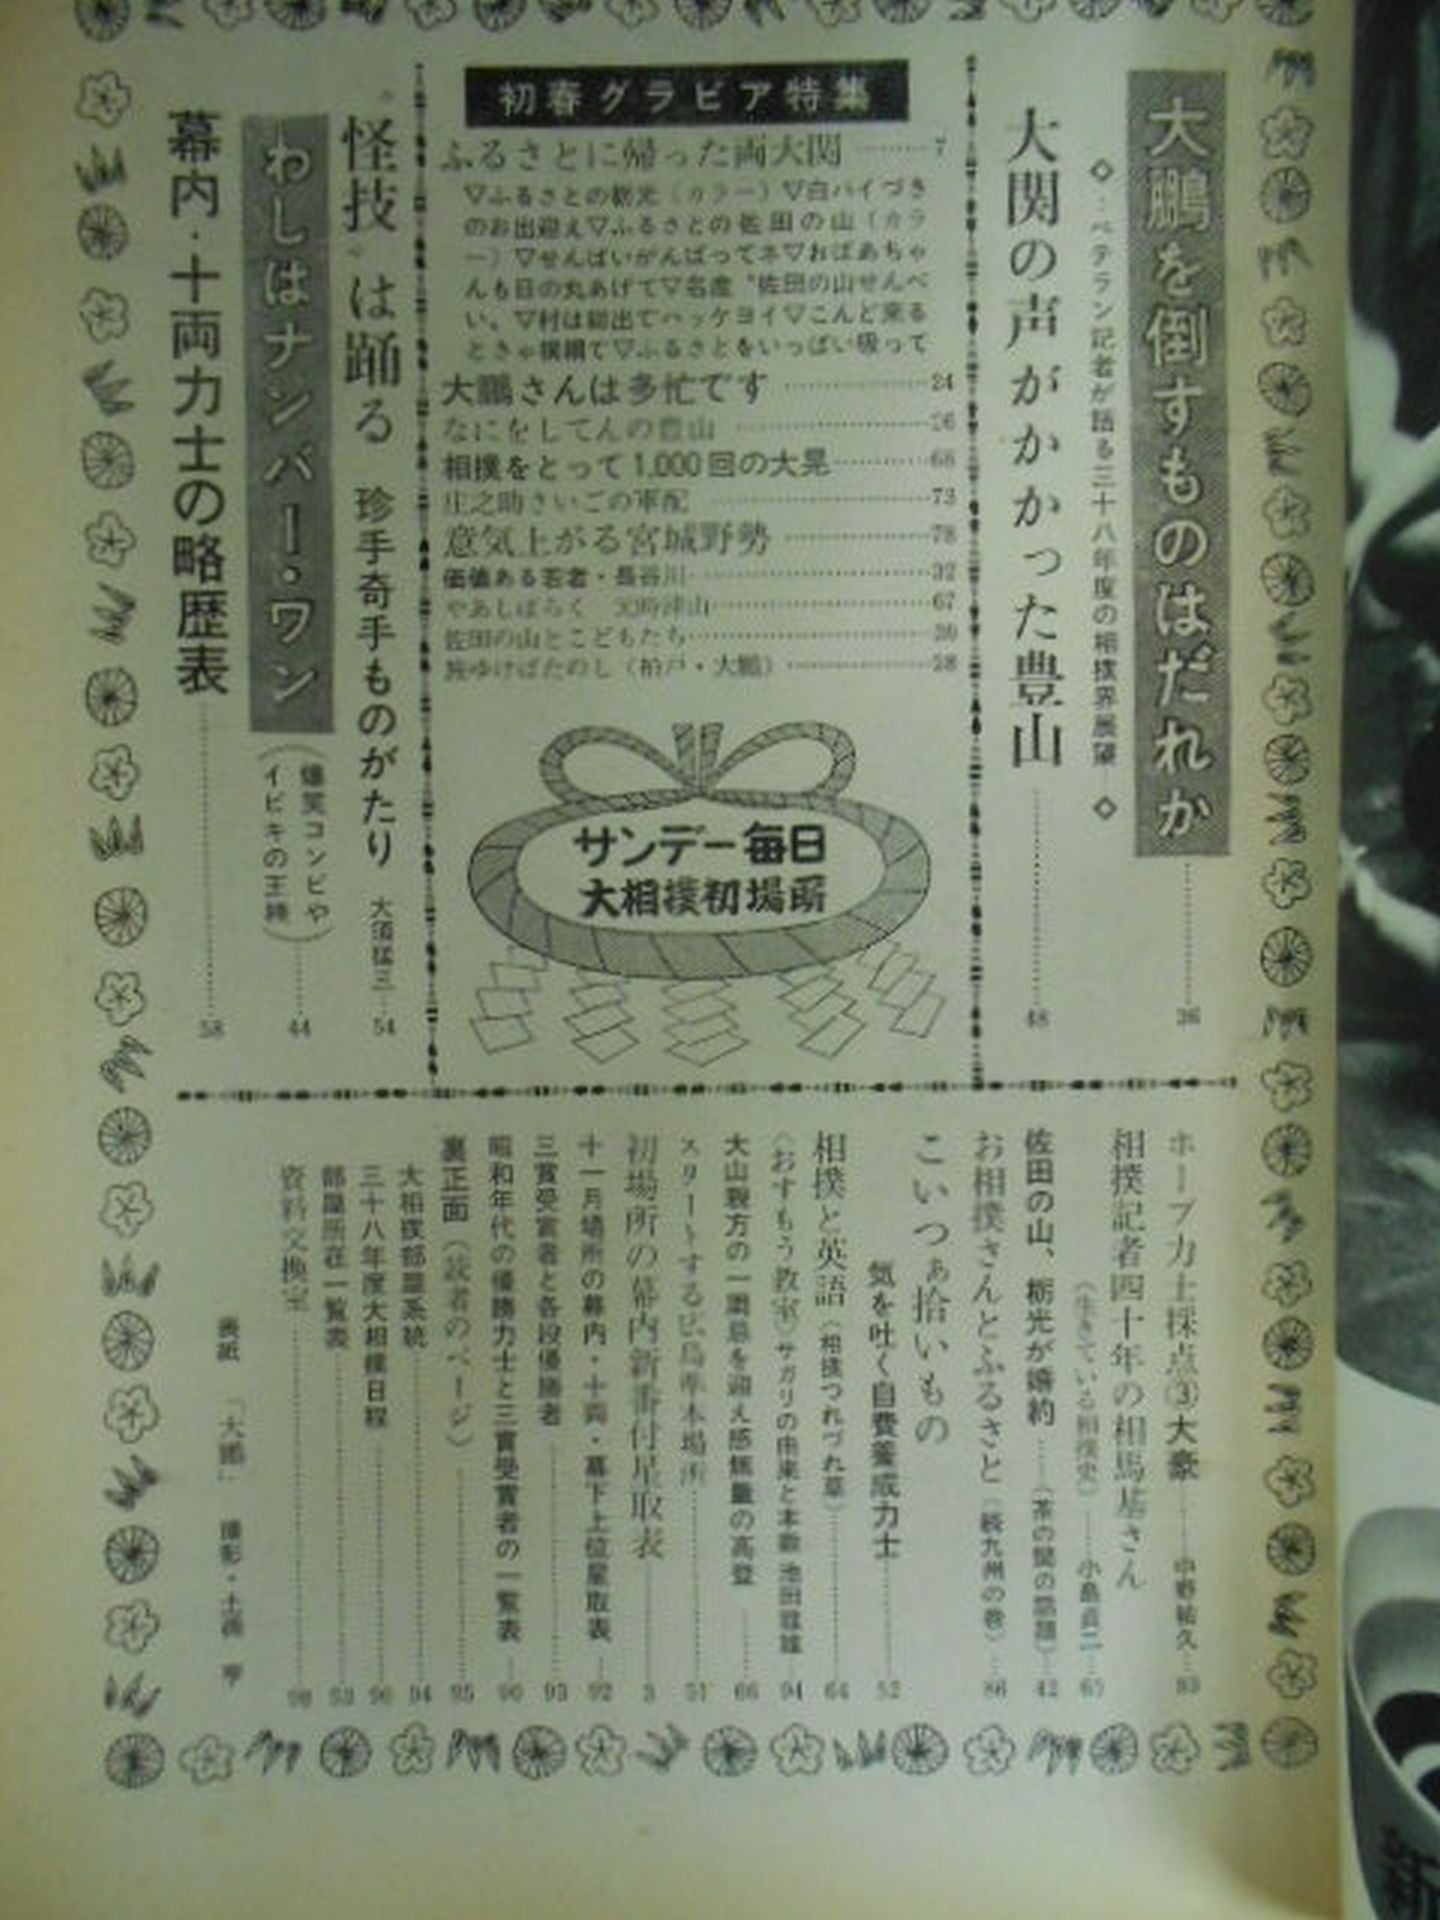 大鵬を倒すものはだれか……36
◇…ベテラン記者が語る三十八年度の相撲界展望…◇
大関の声がかかった豊山……48
初春グラビア特集
ふるさとに帰った両大関……7
▽ふるさとの栃光（カラー）▽白バイつき
のお出迎え▽ふるさとの佐田の山（カラ
ー）▽せんぱいがんばってネ▽おばあちゃ
んも日の丸あげて▽名産〝佐田の山せんべ
い〟▽村は総出でハッケヨイ▽こんど来る
ときゃ横綱で▽ふるさとをいっぱい吸って
大鵬さんは多忙です……24
なにをしてんの豊山……26
相撲をとって1,000回の大晃……68
庄之助さいごの軍配……73
意気上がる宮城野勢……78
価値ある若者・長谷川……32
やあしばらく 元時津山……67
佐田の山とこどもたち……30
旅ゆけばたのし（柏戸・大鵬）……28
サンデー毎日
大相撲初場所
〝怪技〟は踊る 珍手奇手ものがたり 大須猛三…54
わしはナンバー・ワン（爆笑コンビやイビキの王様）……44
幕内・十両力士の略歴表……58
ホープ力士採点③大豪……中野祐久…83
相撲記者四十年の相馬基さん
（生きている相撲史）……小島貞二…65
佐田の山、栃光が婚約……（茶の間の話題）…42
お相撲さんとふるさと（続九州の巻）…86
こいつぁ拾いもの
気を吐く自費養成力士……52
相撲と英語（相撲つれづれ草）……64
（おすもう教室）サガリの由来と本数 池田雅雄…94
大山親方の一周忌を迎え感無量の高登……66
スタートする広島準本場所……51
初場所の幕内新番付星取表……3
十一月場所の幕内・十両・幕下上位星取表…92
三賞受賞者と各段優勝者……93
昭和年代の優勝力士と三賞受賞者の一覧表…90
裏正面（読者のページ）……95
大相撲部屋系統……94
三十八年度大相撲日程……96
部屋所在一覧表……93
資料交換室……98
表紙 「大鵬」 撮影・土
新